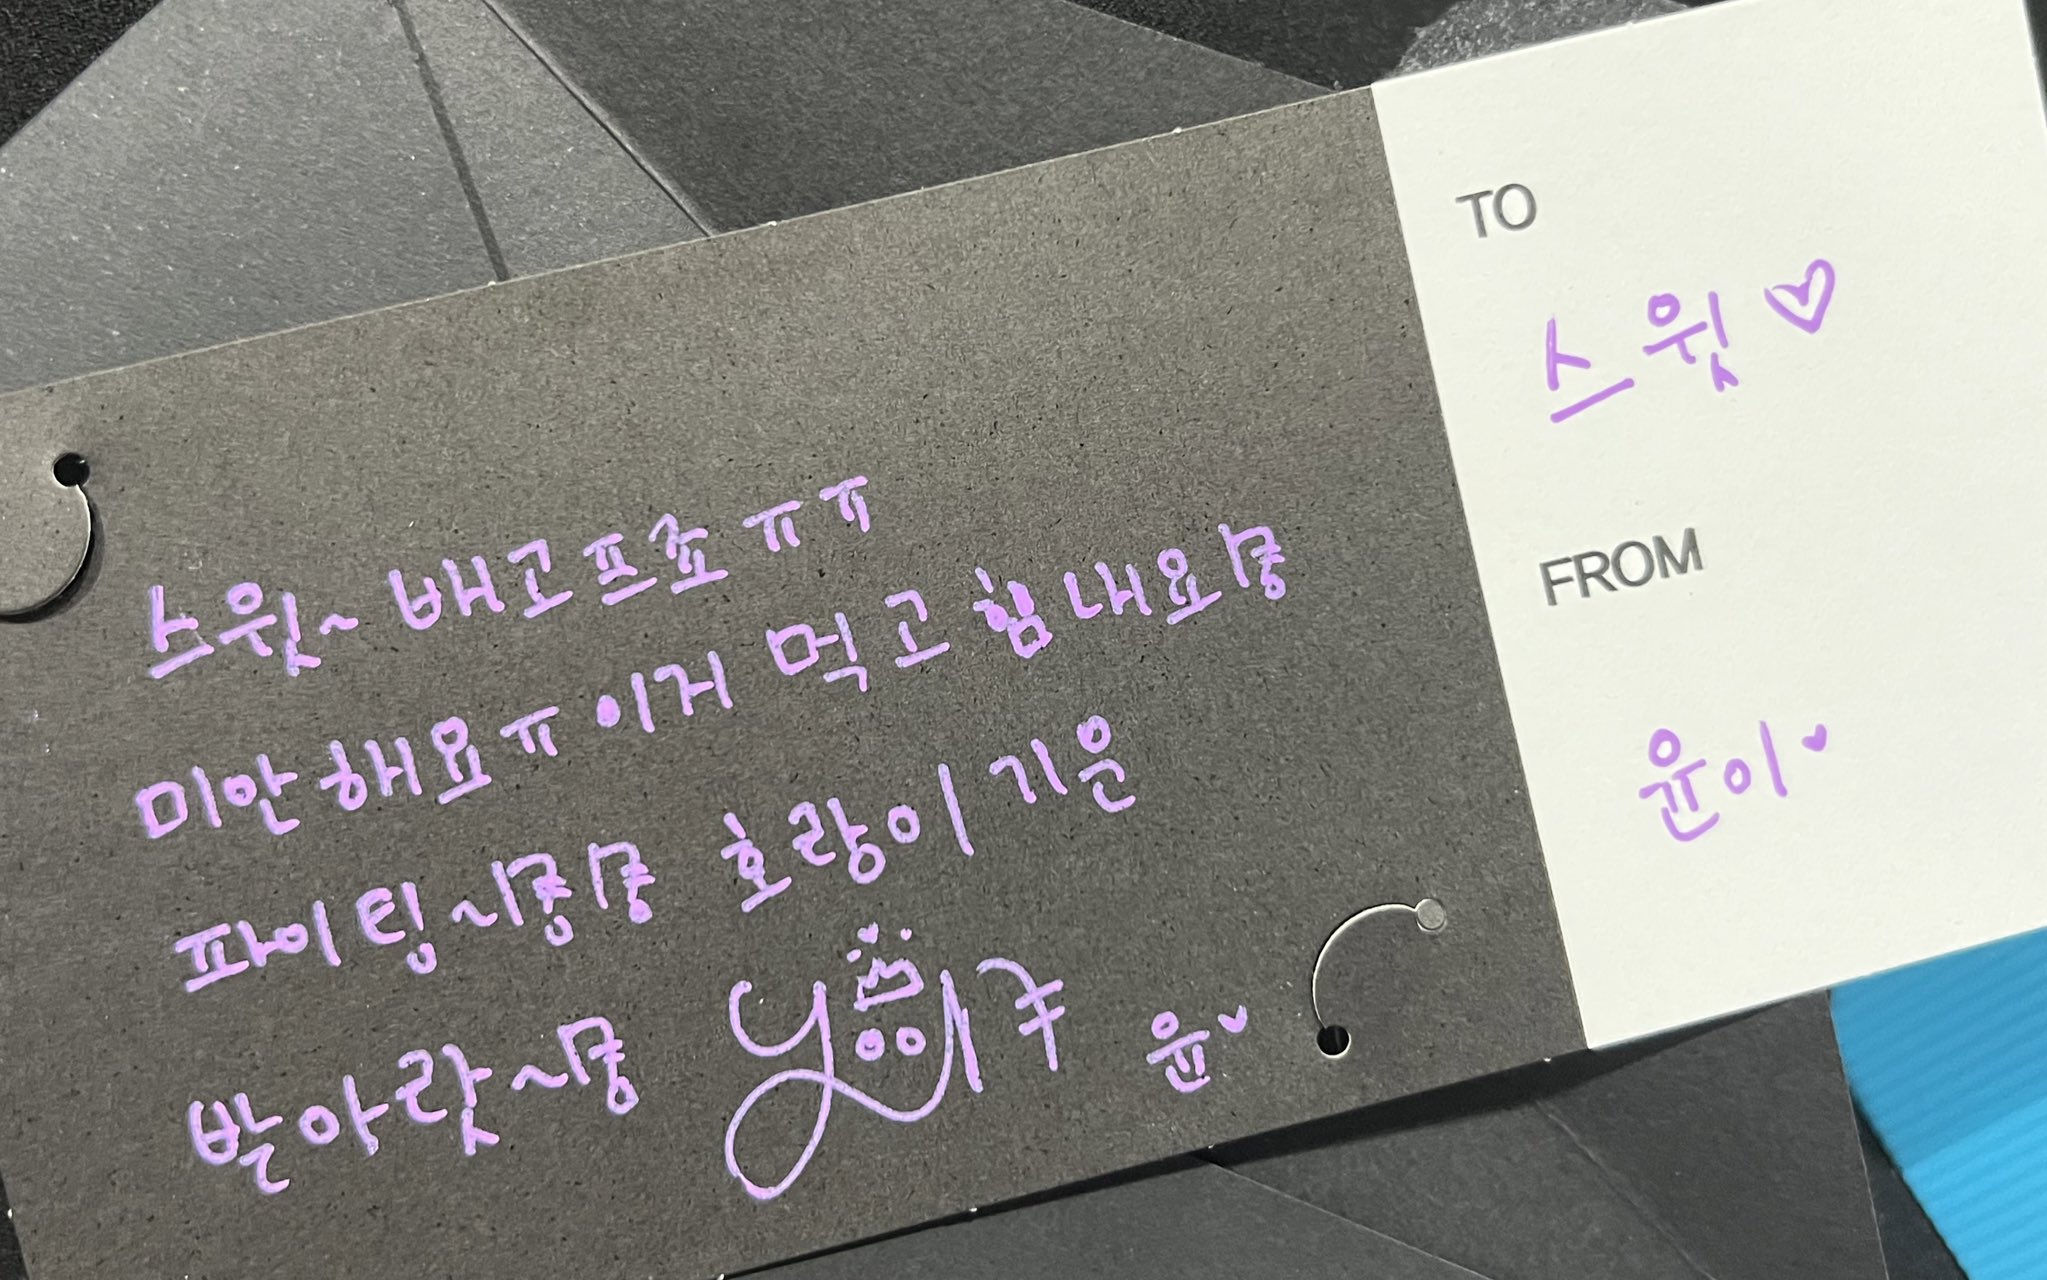 스윗~ 배고프죠 ㅠㅠ
미안해요ㅠ 이거 먹고 힘내요
파이팅~ 호랑이 기운
받아랏~
윤♥
TO
스윗♡
FROM
윤이♥